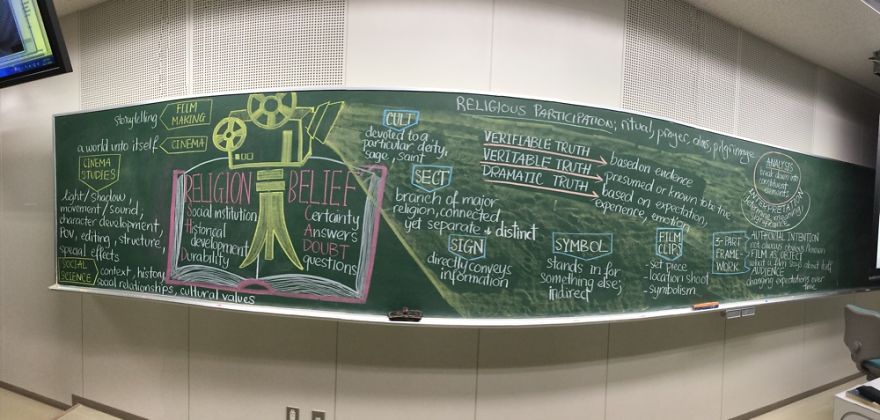 storytelling
FILM
MAKING
a world unto itself
CINEMA
CINEMA
STUDIES
light/shadow,
movement/sound,
character development,
POV, editing, structure,
special effects
SOCIAL
SCIENCE
context, history
social relationships, cultural values
RELIGION
Social institution
Historical
development
Durability
BELIEF
Certainty
Answers
DOUBT
questions
CULT
devoted to a
particular deity,
sage, saint
SECT
branch of major
religion, connected
yet separate & distinct
SIGN
directly conveys
information
RELIGIOUS PARTICIPATION; ritual, prayer, alms, pilgrimage
VERIFIABLE TRUTH
based on evidence
VERITABLE TRUTH
presumed or known to be true
DRAMATIC TRUTH
based on expectation,
experience, emotion
SYMBOL
stands in for
something else;
indirect
FILM
CLIPS
- set piece
- location shoot
- symbolism
ANALYSIS
break down into
constituent
elements
INTERPRETATION
3-PART
FRAME-
WORK
AUTHORIAL INTENTION
not always obvious/known
FILM AS OBJECT
AUDIENCE
changing expectations over
time